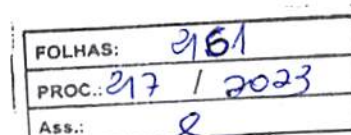 FOLHAS:
PROC.: 217 / 2023
Ass.: